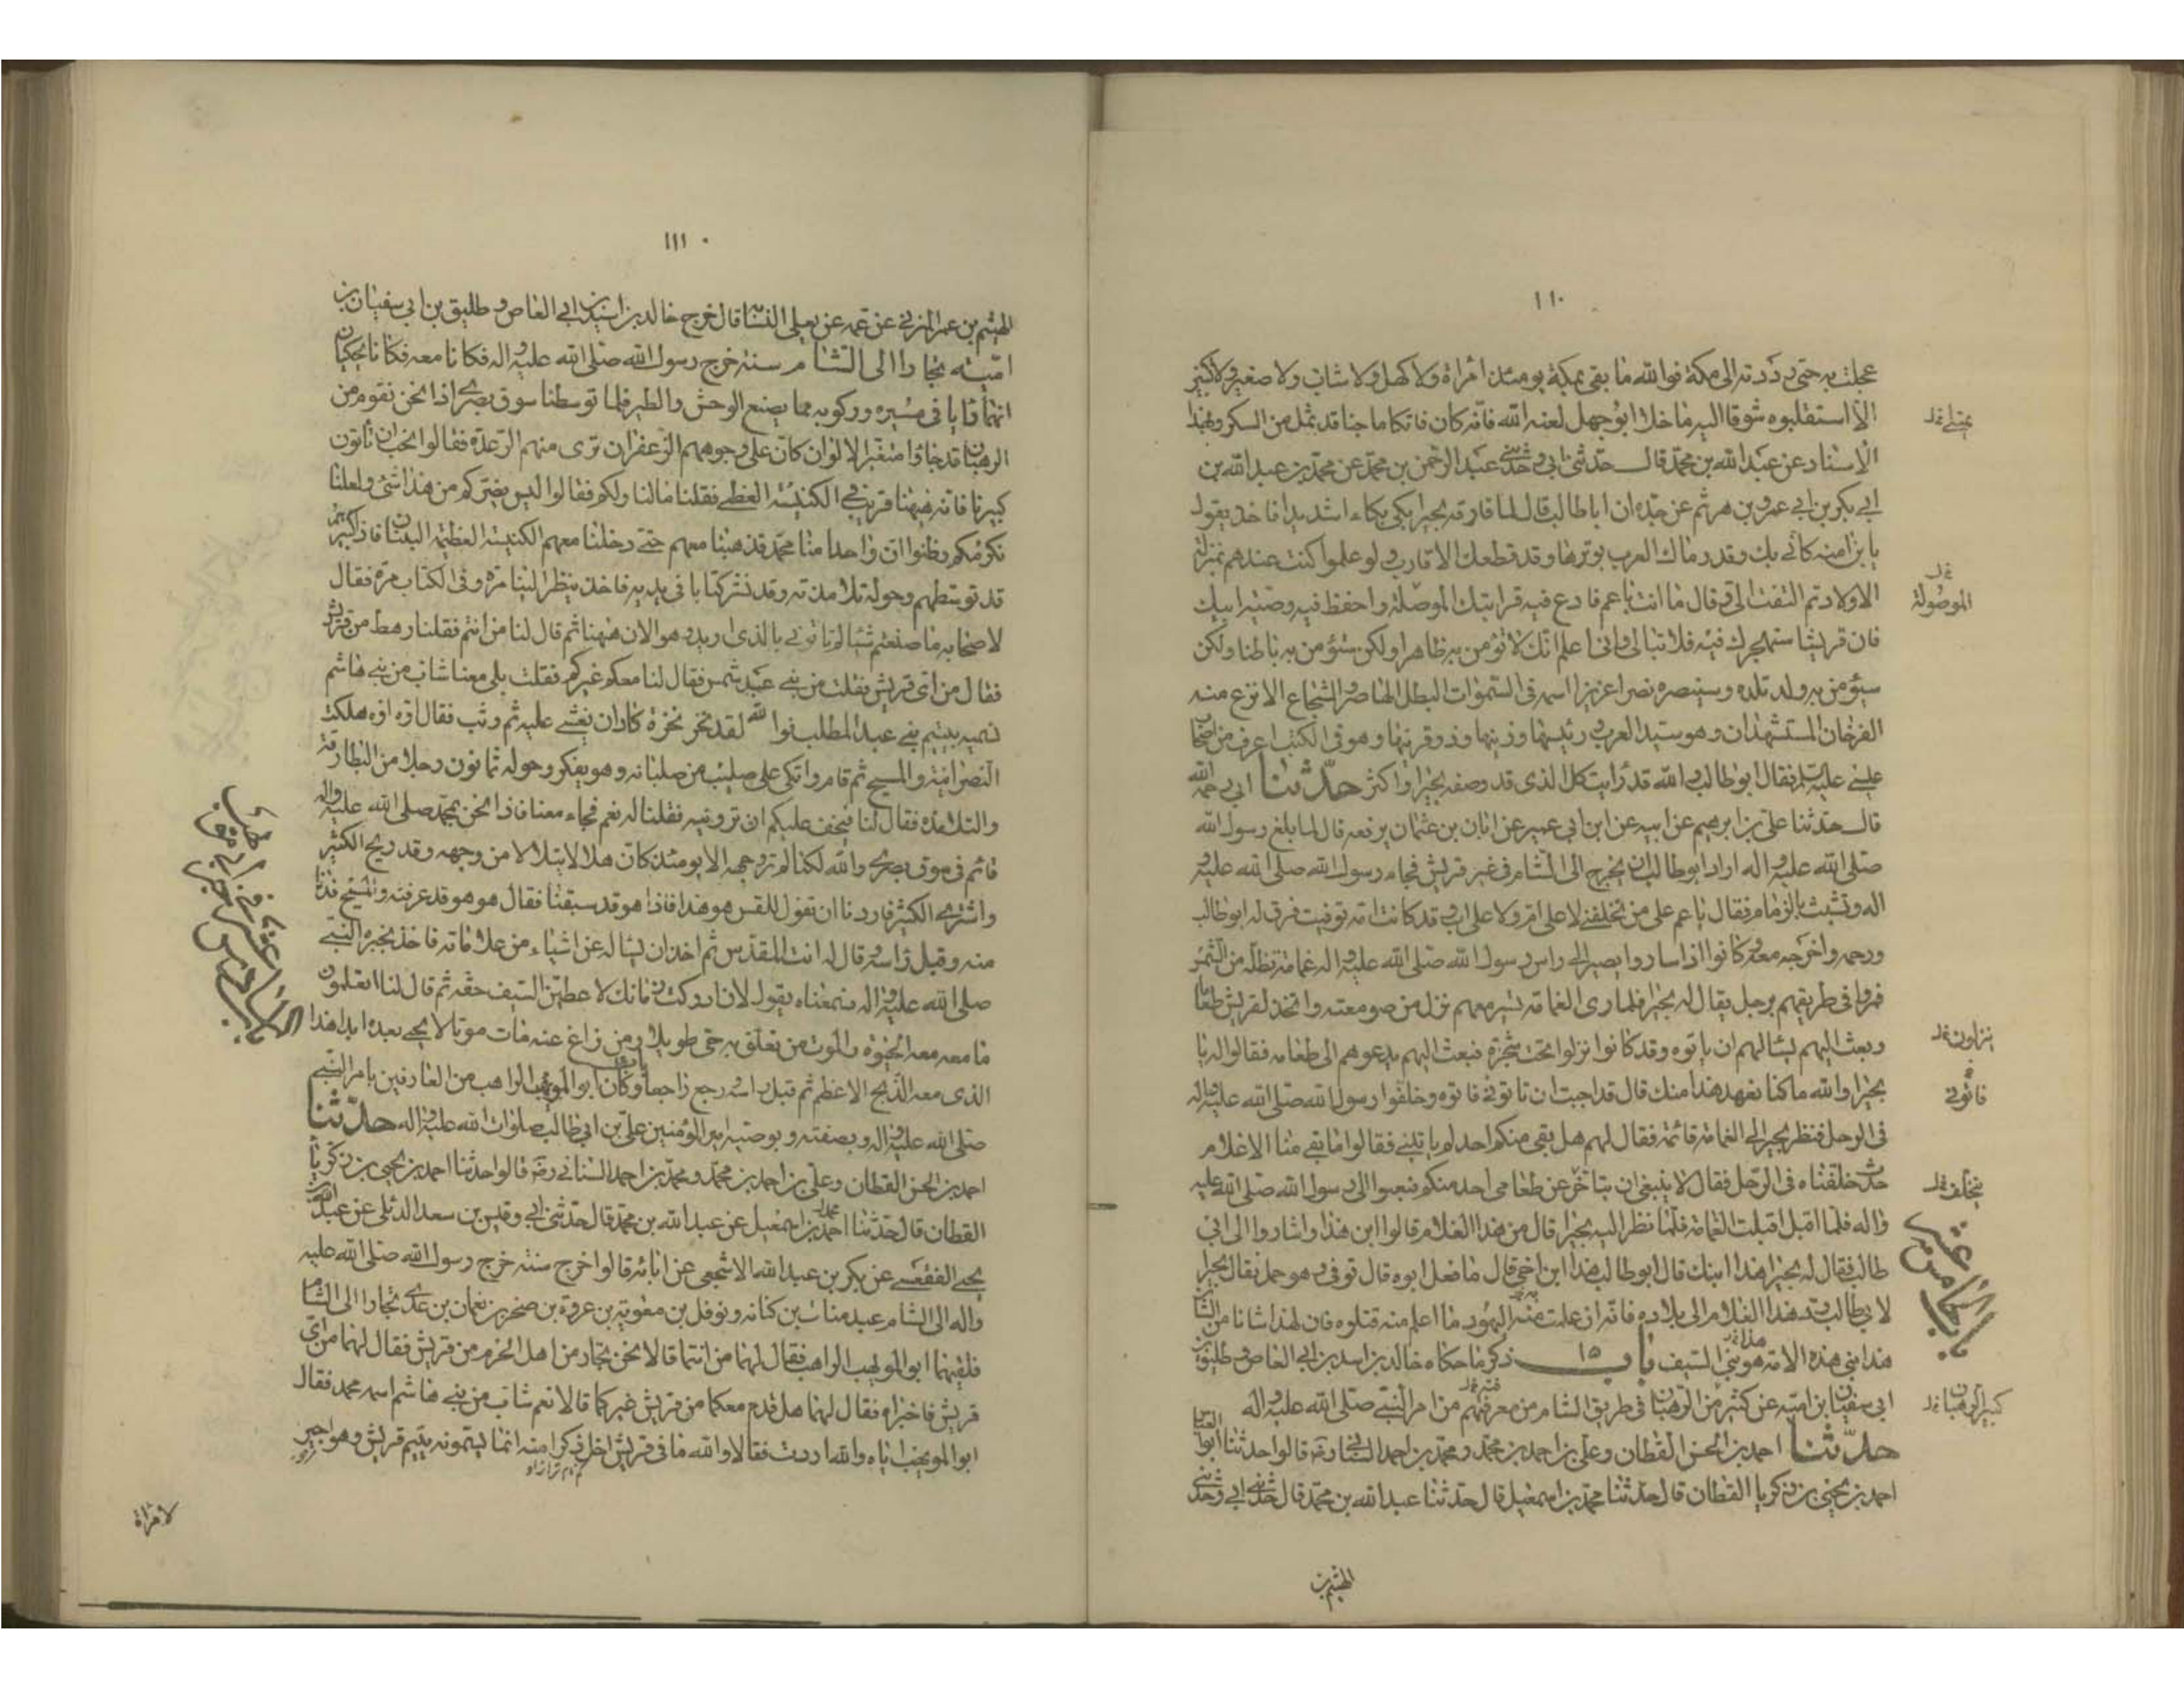 ١١٠
عجلت به حتى رددته الى مكة فوالله ما بقى بمكة يومئذ امراة ولا كهل ولا شاب ولا صغير ولا كبير
الا استقبلوه شوقا اليه ما خلا ابوجهل لعنه الله فانه كان فاتكا ماجنا قد ثمل من السكر وبهذا
الاسناد عن عبد الله بن محمد قال حدثنى ابى وحدثنى عبد الرحمن بن محمد عن محمد بن عبد الله بن
ابى بكر بن ابى عمرو بن هرثم عن جده ان ابا طالب قال لما فارقه بحيرا بكى بكاء اشديدا فاخذ يقول
يابن امنه كانى بك وقد رماك العرب بوترها وقد قطعك الاقارب ولو علموا كنت عندهم بمنزلة
الاولاد ثم التفت الى وقال ما انت ياعم فارع فيه قرابتك الموصلة واحفظ فيه وصية ابيك
فان قريشا ستهجرك فيه فلا تبالى وانى اعلم انك لا تؤمن به ظاهرا ولكن ستؤمن به باطنا ولكن
سيؤمن به ولد تلده وسينصره نصرا عزيزا اسمه فى السموات البطل الهاصر والشجاع الانزع منه
الفرخان المستشهدان وهو سيد العرب ورئيسها وزينها وذوقرنيها وهو فى الكتب اعرف من اصحاب
عيسى عليه السلم فقال ابو طالب والله قد رايت كل الذى قد وصفه بحيرا واكثر حدثنا ابى رحمه الله
قال حدثنا على بن ابرهيم عن ابيه عن ابن ابى عمير عن ابان بن عثمان يرفعه قال لما بلغ رسول الله
صلى الله عليه واله اراد ابو طالب ان يخرج الى الشام فى عير قريش فجاء رسول الله صلى الله عليه
واله وتشبث بالزمام فقال ياعم على من تخلفنى لا على ام ولا على اب وقد كانت امه توفيت فرق له ابو طالب
ورحمه واخرجه معه وكانوا اذا ساروا يصير الى راس رسول الله صلى الله عليه واله غمامة تظله من الشمس
فمروا فى طريقهم برجل يقال له بحيرا فلما راى الغمامة تسير معهم نزل من صومعته واتخذ لقريش طعاما
وبعث اليهم يسالهم ان ياتوه وقد كانوا نزلوا تحت شجرة فبعث اليهم يدعوهم الى طعامه فقالوا له يا
بحيرا والله ما كنا نعهد هذا منك قال قد احببت ان تاتونى فاتوه وخلفوا رسول الله صلى الله عليه واله
فى الرحل فنظر بحيرا الى الغمامة قائمة فقال لهم هل بقى منكم احد لم ياتينى فقالوا ما بقى منا الا غلام
حدث خلفناه فى الرحل فقال لا ينبغى ان يتاخر عن طعامى احد منكم فبعثوا الى رسول الله صلى الله عليه
واله فلما اقبل اقبلت الغمامة فلما نظر اليه بحيرا قال من هذا الغلام قالوا ابن هذا واشاروا الى ابى
طالب فقال له بحيرا هذا ابنك قال ابو طالب هذا ابن اخى قال ما فعل ابوه قال توفى وهو حمل فقال بحيرا
لابى طالب رد هذا الغلام الى بلاده فانه ان علمت منه اليهود ما اعلم منه قتلوه فان لهذا شانا من الشان
هذا نبى هذه الامة هو نبى السيف باب ١٥ ذكر ما حكاه خالد بن اسيد بن ابى العاص وطليق بن
ابى سفيان ابن اميه عن كثير من الرهبان فى طريق الشام من معرفتهم من امر النبى صلى الله عليه واله
حدثنا احمد بن الحسن القطان وعلى بن احمد بن محمد ومحمد بن احمد الشيبانى رضه قالوا حدثنا ابو العباس
احمد بن يحيى بن زكريا القطان قال حدثنا محمد بن اسمعيل قال حدثنا عبد الله بن محمد قال حدثنى ابى وحدثنى
الهيثم بن
الموصولة
ينزلون خ ل
فاتونى
يتخلف خ ل
الباب الخامس عشر
كبير الرهبان خ ل
١١١
الهيثم بن عمر المزنى عن عمه عن يعلى النسابه قال خرج خالد بن اسيد بن ابى العاص وطليق بن ابى سفيان بن
اميه تجارا الى الشام سنة خرج رسول الله صلى الله عليه واله فكانا معه فكانا يحكيان
انهما رايا فى مسيره وركوبه مما يصنع الوحش والطير فلما توسطنا سوق بصرى اذا نحن بقوم من
الرهبان قد جاؤا متغير الالوان كان على وجوههم الزعفران ترى منهم الرعدة فقالوا نحب ان تاتون
كبيرنا فانه ههنا قريب فى الكنيسه العظمى فقلنا ما لنا ولكم فقالوا ليس يضركم من هذا شئ ولعلنا
نكرمكم وظنوا ان واحدا منا محمد فذهبنا معهم حتى دخلنا معهم الكنيسه العظيمه البنيان فاذا كبيرهم
قد توسطهم وحوله تلامذته وقد نشر كتابا فى يديه فاخذ ينظر الينا مرة وفى الكتاب مرة فقال
لاصحابه ما صنعتم شيئا لم تاتونى بالذى اريد وهو الان ههنا ثم قال لنا من انتم فقلنا رهط من قريش
فقال من اى قريش فقلت من بنى عبد شمس فقال لنا معكم غيركم فقلت بلى معنا شاب من بنى هاشم
نسميه يتيم بنى عبد المطلب فوالله لقد نخر نخرة كاد ان يغشى عليه ثم وثب فقال اوه اوه هلكت
النصرانية والمسيح ثم قام واتكى على صليب من صلبانه وهو يفكر وحوله ثمانون رجلا من البطارقة
والتلامذه فقال لنا فيخف عليكم ان ترونيه فقلنا له نعم فجاء معنا فاذا نحن بمحمد صلى الله عليه واله
قائم فى سوق بصرى والله لكنا لم نر وجهه الا يومئذ كان هلالا يتلالا من وجهه وقد ربح الكثير
واشترى الكثير فاردنا ان نقول للقس هو هذا فاذا هو قد سبقنا فقال هو هو قد عرفته والمسيح فدنا
منه وقبل راسه وقال له انت المقدس ثم اخذ ان يساله عن اشياء من علاماته فاخذ يخبره النبى
صلى الله عليه واله فسمعناه يقول لان ادركت زمانك لاعطين السيف حقه ثم قال لنا اتعلمون
ما معه معه الحيوة والموت من تعلق به حى طويلا ومن زاغ عنه مات موتا لا يحيى بعده ابدا هذا
الذى معه الذبح الاعظم ثم قبل راسه ورجع راجعا وكان ابو المويهب الراهب من العارفين بامر النبى
صلى الله عليه واله وبصفته وبوصيه امير المؤمنين على بن ابى طالب صلوات الله عليه واله حدثنا
احمد بن الحسن القطان وعلى بن احمد بن محمد ومحمد بن احمد السنانى رضه قالوا حدثنا احمد بن يحيى بن زكريا
القطان قال حدثنا محمد بن اسمعيل عن عبد الله بن محمد قال حدثنى ابى وقيس بن سعد الدئلى عن عبد الله
بحى الفقعسى عن بكر بن عبد الله الاشجعى عن ابائه قالوا خرج سنة خرج رسول الله صلى الله عليه
واله الى الشام عبد مناة بن كنانه ونوفل بن معوية بن عروة بن صخر بن نعمان بن عدى تجارا الى الشام
فلقيهما ابو المويهب الراهب فقال لهما من انتما قالا نحن تجار من اهل الحرم من قريش فقال لهما من اى
قريش فاخبراه فقال لهما هل قدم معكما من قريش غيركما قالا نعم شاب من بنى هاشم اسمه محمد فقال
ابو المويهب اياه والله اردت فقالا والله ما فى قريش اخمل ذكرا منه انما يسمونه يتيم قريش وهو اجير
لامراة